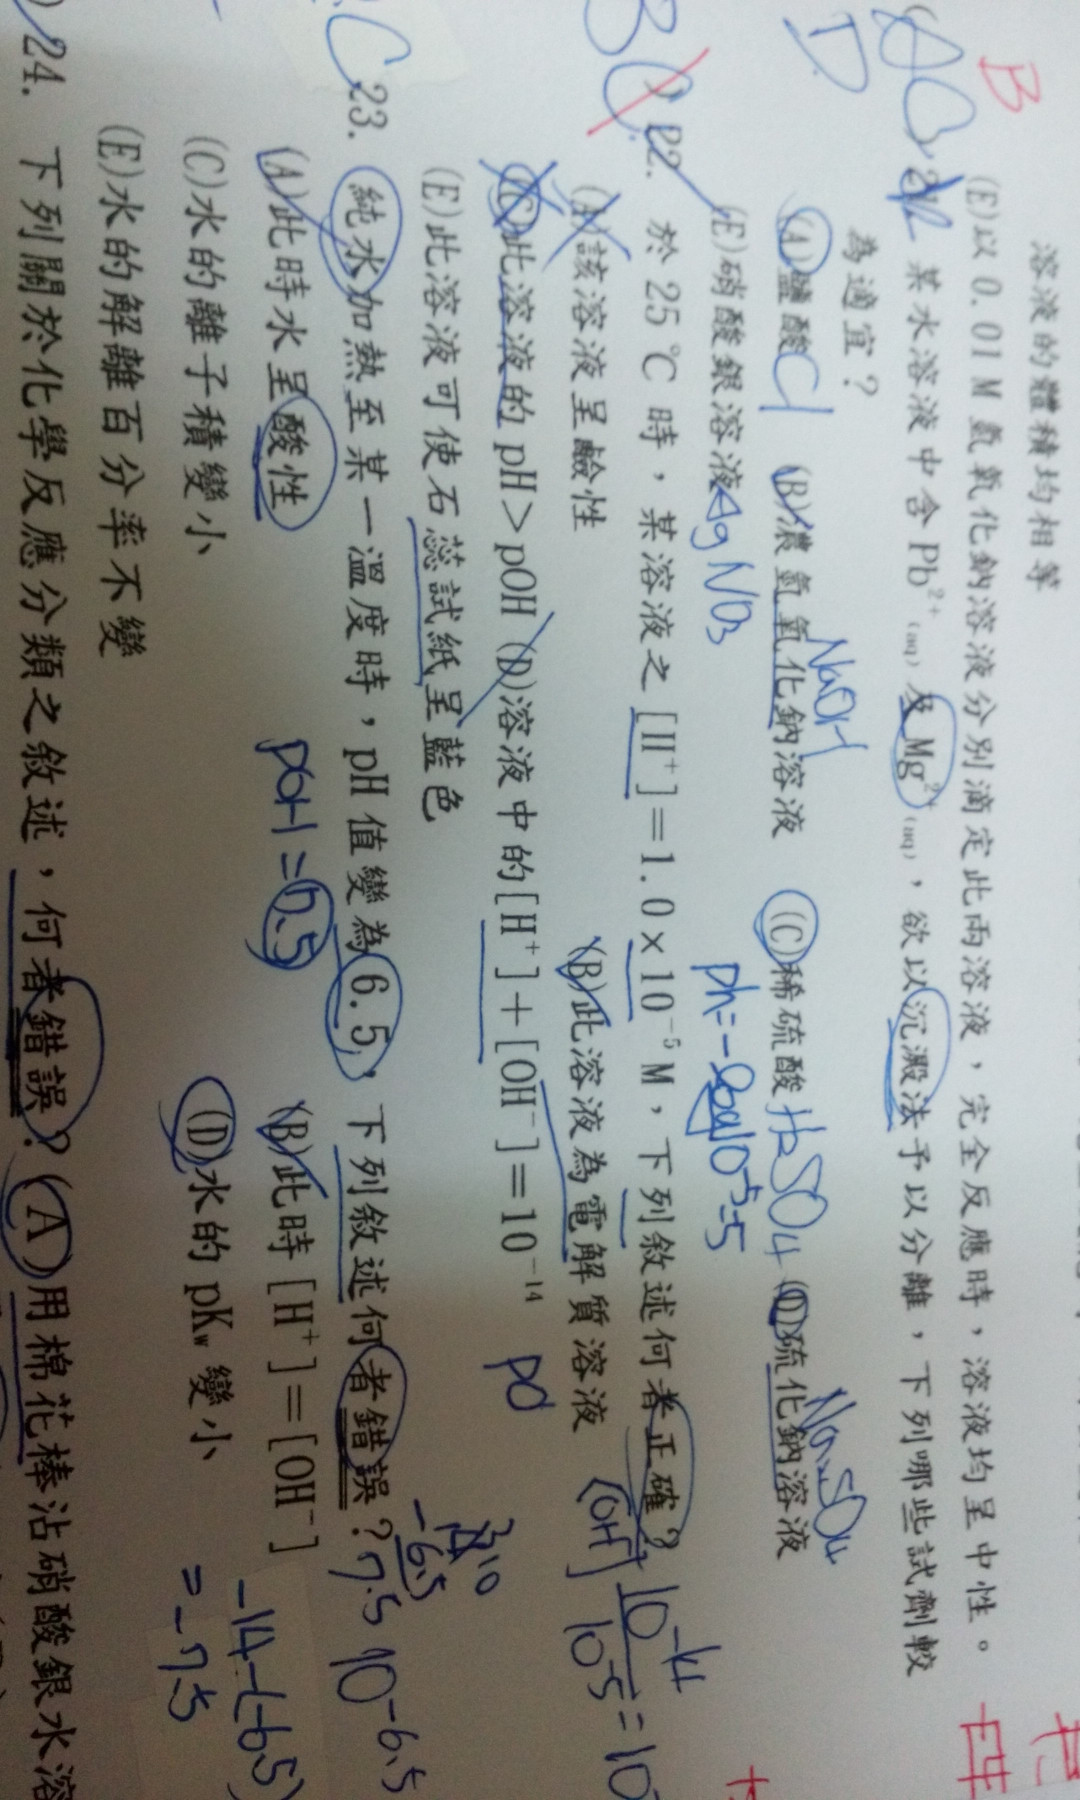 溶液的體積均相等
(E)以 0.01 M 氫氧化鈉溶液分別滴定此兩溶液，完全反應時，溶液均呈中性。
B
某水溶液中含 Pb²⁺(aq) 及 Mg²⁺(aq)，欲以沉澱法予以分離，下列哪些試劑較
為適宜？
D
(A)鹽酸 Cl (B)濃氫氧化鈉溶液 NaOH (C)稀硫酸 H₂SO₄ (D)硫化鈉溶液 Na₂SO₄
(E)硝酸銀溶液 AgNO₃
ph=-log10⁻⁵=5
22. 於 25℃ 時，某溶液之 [H⁺]＝1.0×10⁻⁵ M，下列敘述何者正確？
(A)該溶液呈鹼性 (B)此溶液為電解質溶液
[OH⁻]
(C)此溶液的 pH＞pOH (D)溶液中的[H⁺]＋[OH⁻]＝10⁻¹⁴
(E)此溶液可使石蕊試紙呈藍色
C
23. 純水加熱至某一溫度時，pH 值變為 6.5，下列敘述何者錯誤？
-6.5
7.5
10-6.5
(A)此時水呈酸性 (B)此時 [H⁺]＝[OH⁻]
pOH=7.5
-14-(-6.5)
=-7.5
(C)水的離子積變小 (D)水的 pKw 變小
(E)水的解離百分率不變
24. 下列關於化學反應分類之敘述，何者錯誤？(A)用棉花棒沾硝酸銀水溶